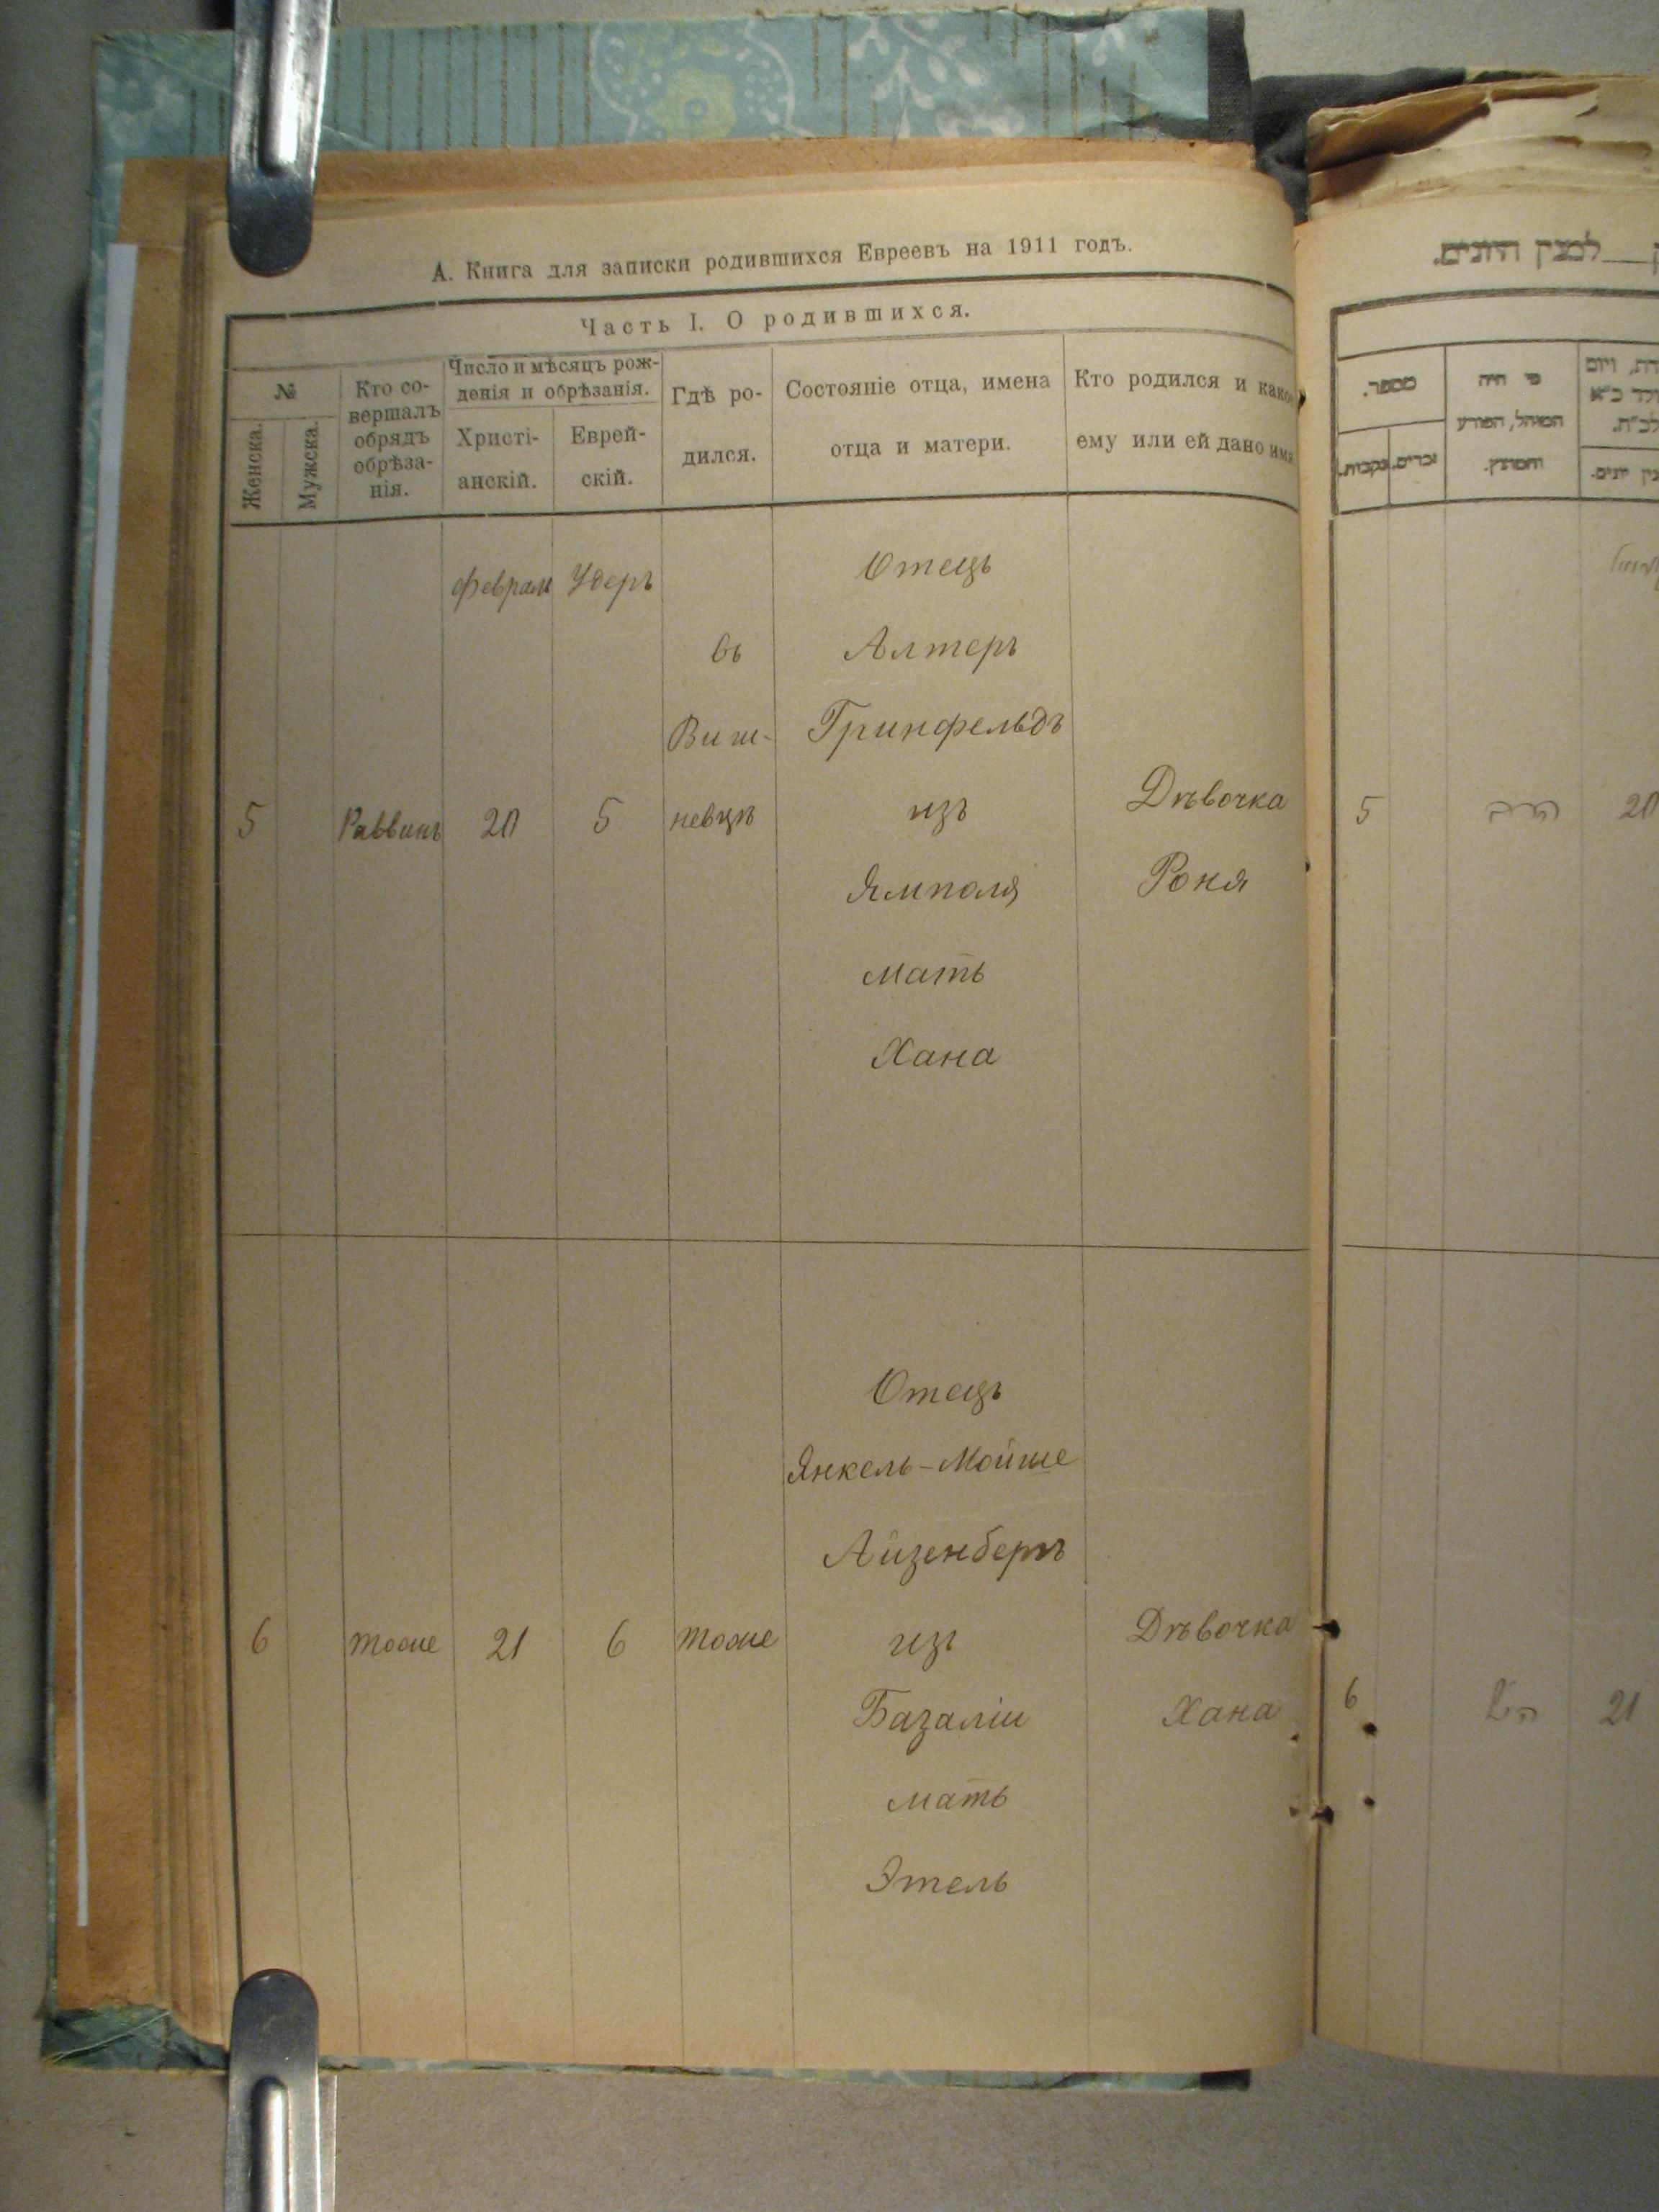 А. Книга для записки родившихся Евреевъ на 1911 годъ.
Часть I. О родившихся.
№
Женска.
Мужска.
Кто со-
вершалъ
обрядъ
обрѣза-
нія.
Число и мѣсяцъ рож-
денія и обрѣзанія.
Христі-
анскій.
Еврей-
скій.
Гдѣ ро-
дился.
Состояніе отца, имена
отца и матери.
Кто родился и какое
ему или ей дано имя
5
Раввинъ
Февраль
20
Удеръ
5
въ
Виш-
невцѣ
Отецъ
Алтеръ
Гринфельдъ
изъ
Ямполя
мать
Хана
Дѣвочка
Роня
6
тоже
21
6
тоже
Отецъ
Янкель-Мойше
Айзенбергъ
изъ
Базаліи
мать
Этель
Дѣвочка
Хана
למנין היונים.
מספר.
נקבות.
זכרים.
מי היה
המוהל, הפורע
והמוצץ.
5
20
6
21